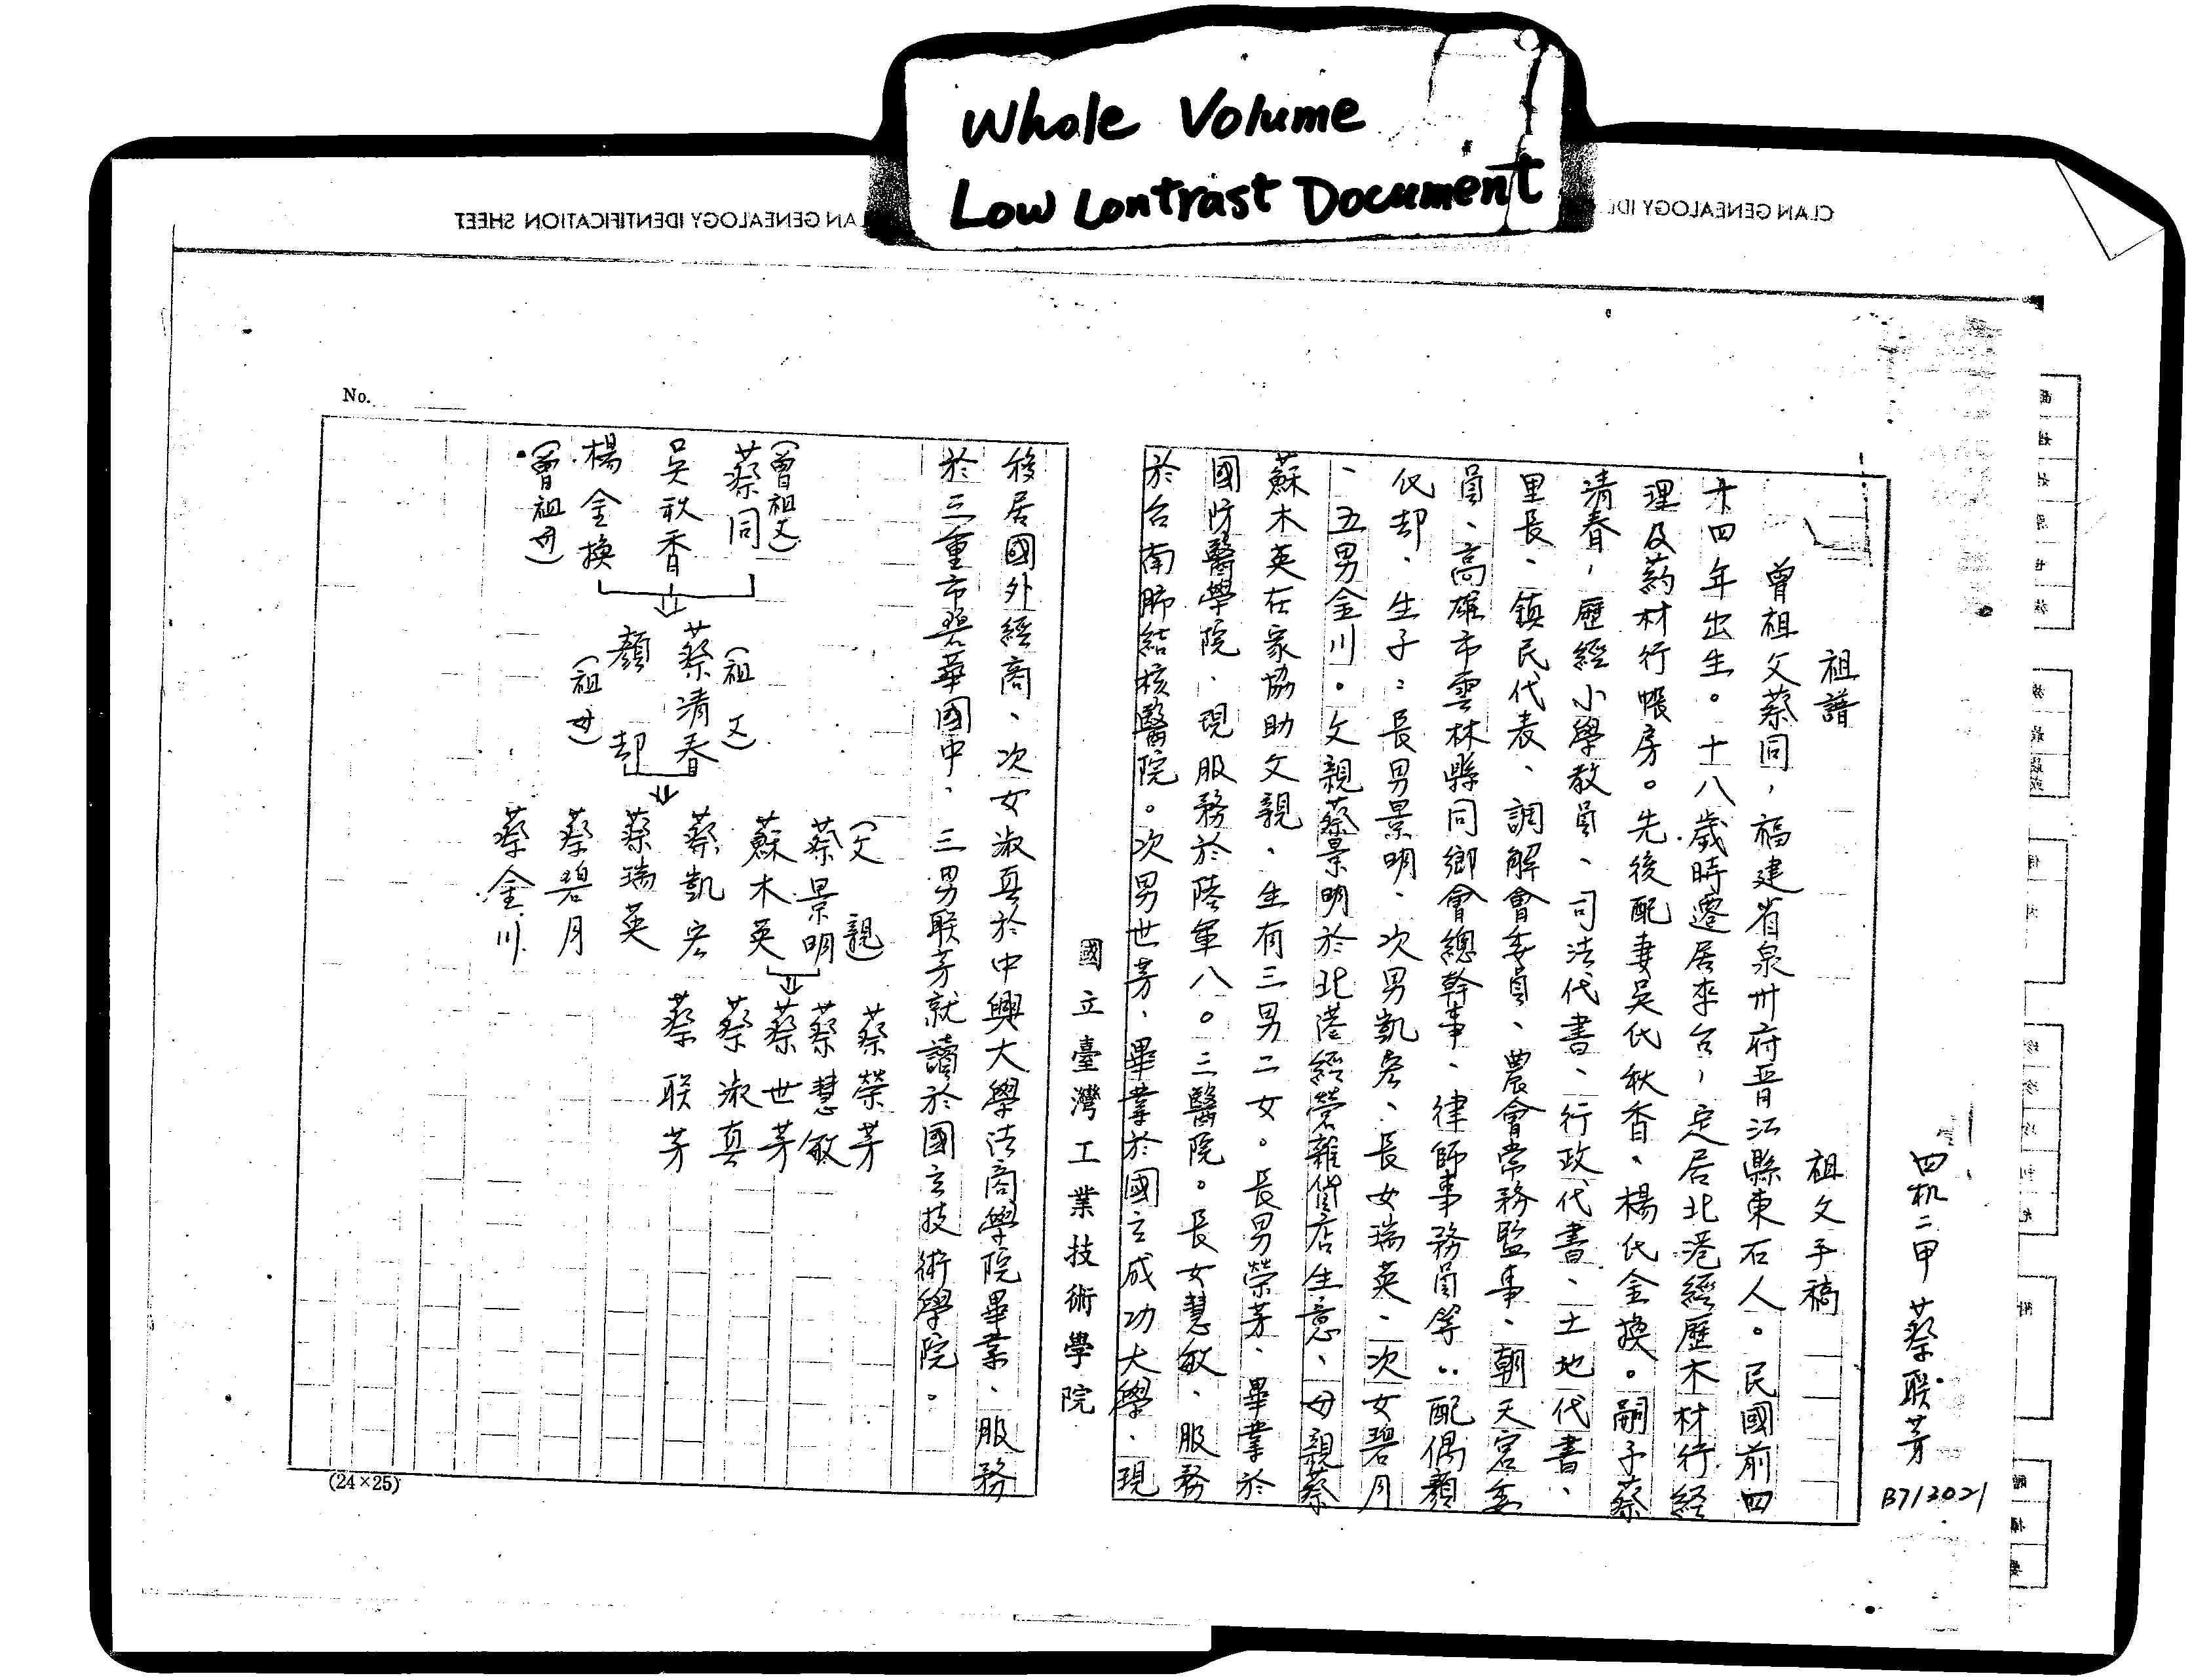 Whole Volume
Low Contrast Document
CLAN GENEALOGY IDENTIFICATION SHEET
四机二甲 蔡联芳 B713021
祖譜 祖父手稿
曾祖父蔡同，福建省泉州府晉江縣東石人。民國前四
十四年出生。十八歲時遷居來台，定居北港經歷木材行經
理及葯材行帳房。先後配妻吴氏秋香、楊氏金換。嗣子蔡
清春，歷經小學教員、司法代書、行政代書、土地代書、
里長、鎮民代表、調解會委員、農會常務監事、朝天宮委
員、高雄市雲林縣同鄉會總幹事、律師事務員等..配偶顏
氏却、生子：長男景明、次男凱宏、長女瑞英、次女碧月
、五男金川。父親蔡景明於北港經營雜貨店生意、母親蔡
蘇木英在家協助父親、生有三男二女。長男榮芳、畢業於
國防醫學院、現服務於陸軍八〇三醫院。長女慧敏、服務
於台南肺結核醫院。次男世芳、畢業於國立成功大學、現
國立臺灣工業技術學院
移居國外經商、次女淑真於中興大學法商學院畢業、服務
於三重市碧華國中、三男联芳就讀於國立技術學院。
No.
(曾祖父)
蔡同
吴秋香
楊金換
(曾祖母)
(祖父)
蔡清春
顏却
(祖母)
(父親)
蔡景明
蘇木英
蔡凱宏
蔡瑞英
蔡碧月
蔡金川
蔡榮芳
蔡慧敏
蔡世芳
蔡淑真
蔡联芳
(24×25)